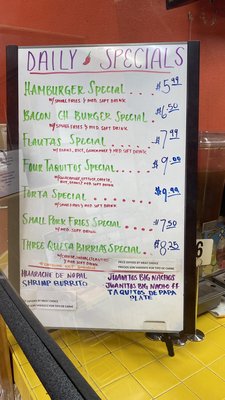 DAILY SPECIALS
HAMBURGER SPECIAL .... $5.99
W/SMALL FRIES & MED. SOFT DRINK
BACON CH BURGER SPECIAL . $6.50
W/SMALL FRIES & MED. SOFT DRINK
FLAUTAS SPECIAL ..... $7.99
FOUR TAQUITOS SPECIAL ... $9.00
TORTA SPECIAL ...... $9.99
W/SMALL FRIES & MED SOFT DRINK
SMALL PORK FRIES SPECIAL .. $7.50
W/MED. SOFT DRINK
THREE QUESA BIRRIAS SPECIAL . $8.25
& MED SOFT DRINK
HUARACHE DE NOPAL
SHRIMP BURRITO
JUANITOS BIG NACHOS
JUANITOS BIG NACHO FF
TAQUITOS DE PAPA
PLATE
6